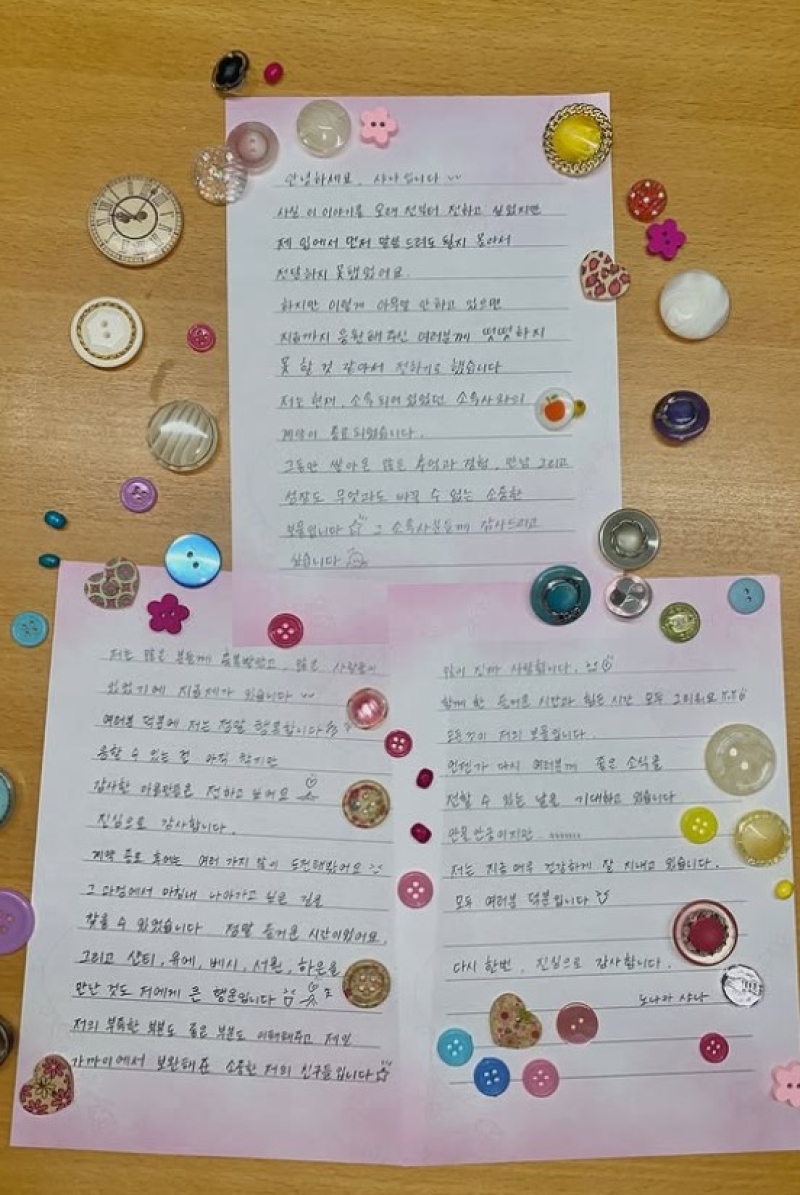 안녕하세요, 샤나입니다
사실 이 이야기를 오래 전부터 전하고 싶었지만
제 입에서 먼저 말씀 드려도 될지 몰라서
전달하지 못했었어요.
하지만 이렇게 아무말 안 하고 있으면
지금까지 응원해주신 여러분께 떳떳하지
못 할 것 같아서 전하기로 했습니다
저는 현재, 소속되어 있었던 소속사와의
계약이 종료되었습니다.
그동안 쌓아온 많은 추억과 경험, 만남 그리고
성장도 무엇과도 바꿀 수 없는 소중한
보물입니다 그 소속사분들께 감사드리고
싶습니다
저는 많은 분들께 축복받았고, 많은 사람들이
있었기에 지금 제가 있습니다
여러분 덕분에 저는 정말 행복합니다
응할 수 있는 건 아직 작지만
감사한 마음만큼은 전하고 싶어요
진심으로 감사합니다.
계약 종료 후에는 여러 가지 많이 도전해봤어요
그 과정에서 마침내 나아가고 싶은 길을
찾을 수 있었습니다 정말 즐거운 시간이었어요.
그리고 샨티, 유에, 베시, 서원, 하은을
만난 것도 저에게 큰 행운입니다
저의 부족한 부분도 좋은 부분도 이해해주고 제일
가까이에서 보완해준 소중한 저의 친구들입니다
많이 진짜 사랑합니다.
함께 한 즐거운 시간과 힘든 시간 모두 그리워요
모든 것이 저의 보물입니다.
언젠가 다시 여러분께 좋은 소식을
전할 수 있는 날을 기대하고 있습니다
안물안궁이지만 ㅋㅋㅋㅋㅋㅋ
저는 지금 매우 건강하게 잘 지내고 있습니다.
모두 여러분 덕분입니다
다시 한번, 진심으로 감사합니다.
노나카 샤나